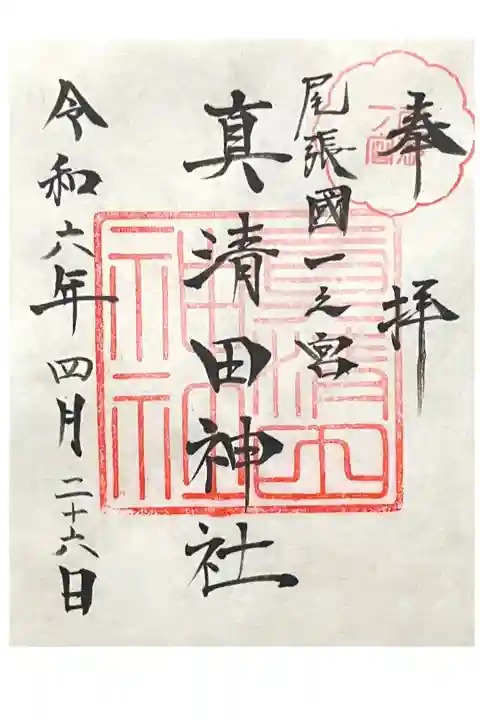 奉拝
尾張國一之宮
真清田神社
令和六年四月二十六日
真清田神社